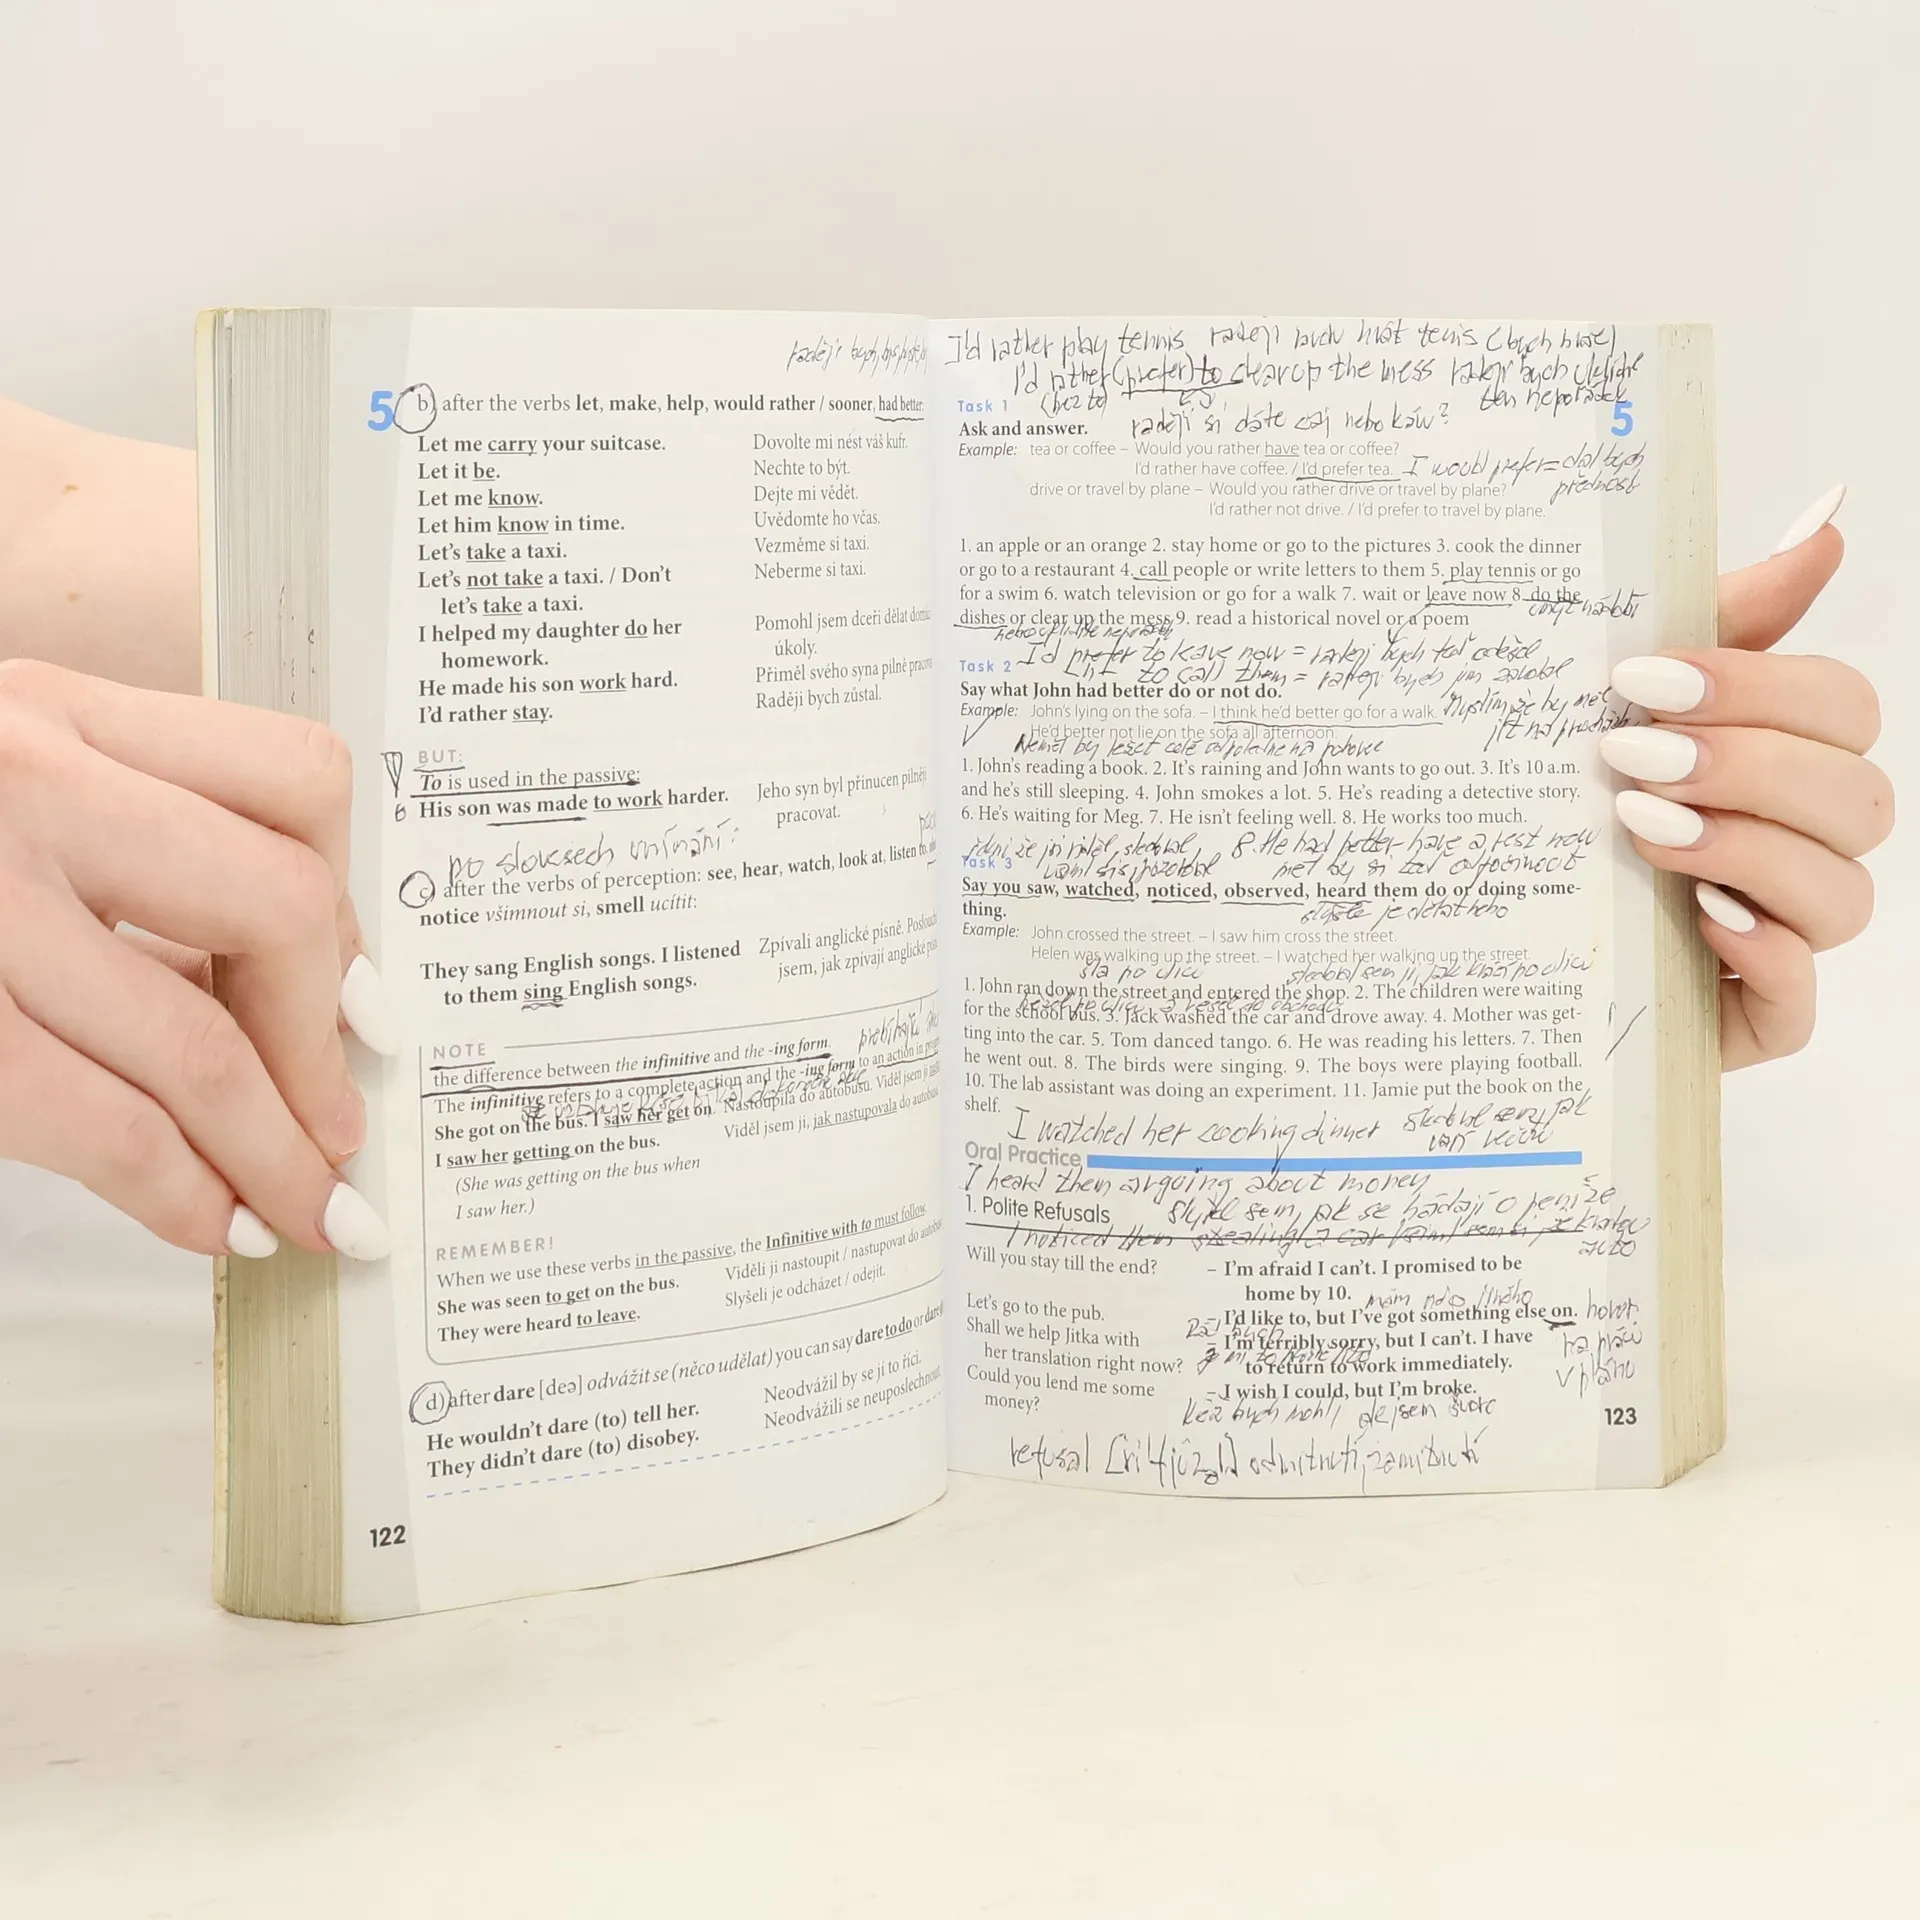 raději bych,
5 b) after the verbs let, make, help, would rather / sooner, had better:
Let me carry your suitcase. Dovolte mi nést váš kufr.
Let it be. Nechte to být.
Let me know. Dejte mi vědět.
Let him know in time. Uvědomte ho včas.
Let's take a taxi. Vezměme si taxi.
Let's not take a taxi. / Don't Neberme si taxi.
let's take a taxi.
I helped my daughter do her Pomohl jsem dceři dělat
homework. úkoly.
He made his son work hard. Přiměl svého syna pilně
I'd rather stay. Raději bych zůstal.
BUT:
To is used in the passive:
His son was made to work harder. Jeho syn byl přinucen pilněji
pracovat.
po slovesech vnímání:
c) after the verbs of perception: see, hear, watch, look at, listen to,
notice všimnout si, smell ucítit:
They sang English songs. I listened Zpívali anglické písně.
to them sing English songs. jsem, jak zpívají anglické
NOTE
the difference between the infinitive and the -ing form.
The infinitive refers to a complete action and the -ing form to an action in
She got on the bus. I saw her get on. Nastoupila do autobusu. Viděl jsem ji
I saw her getting on the bus. Viděl jsem ji, jak nastupovala do
(She was getting on the bus when
I saw her.)
REMEMBER!
When we use these verbs in the passive, the Infinitive with to must follow.
She was seen to get on the bus. Viděli ji nastoupit / nastupovat do
They were heard to leave. Slyšeli je odcházet / odejít.
d) after dare [deə] odvážit se (něco udělat) you can say dare to do or
He wouldn't dare (to) tell her. Neodvážil by se jí to říci.
They didn't dare (to) disobey. Neodvážili se neuposlechnout.
122
I'd rather play tennis raději budu hrát tenis (bych hrál)
I'd rather (prefer) to clear up the mess raději bych uklidil
(bez to) ten nepořádek
Task 1 5
Ask and answer. raději si dáte čaj nebo kávu?
Example: tea or coffee – Would you rather have tea or coffee?
I'd rather have coffee. / I'd prefer tea. I would prefer = dal bych
přednost
drive or travel by plane – Would you rather drive or travel by plane?
I'd rather not drive. / I'd prefer to travel by plane.
1. an apple or an orange 2. stay home or go to the pictures 3. cook the dinner
or go to a restaurant 4. call people or write letters to them 5. play tennis or go
for a swim 6. watch television or go for a walk 7. wait or leave now 8. do the
dishes or clear up the mess 9. read a historical novel or a poem
I'd prefer to leave now = raději bych teď odešel
to call them = raději bych jim zavolal
Task 2
Say what John had better do or not do.
Example: John's lying on the sofa. – I think he'd better go for a walk. Myslím že by měl
jít na procházku
He'd better not lie on the sofa all afternoon.
Neměl by ležet celé odpoledne na pohovce
1. John's reading a book. 2. It's raining and John wants to go out. 3. It's 10 a.m.
and he's still sleeping. 4. John smokes a lot. 5. He's reading a detective story.
6. He's waiting for Meg. 7. He isn't feeling well. 8. He works too much.
8. He had better have a rest now
měl by si teď odpočinout
Task 3
Say you saw, watched, noticed, observed, heard them do or doing some-
thing.
Example: John crossed the street. – I saw him cross the street.
Helen was walking up the street. – I watched her walking up the street.
šla po ulici sledoval sem ji, jak kráčí po ulici
1. John ran down the street and entered the shop. 2. The children were waiting
for the school bus. 3. Jack washed the car and drove away. 4. Mother was get-
ting into the car. 5. Tom danced tango. 6. He was reading his letters. 7. Then
he went out. 8. The birds were singing. 9. The boys were playing football.
10. The lab assistant was doing an experiment. 11. Jamie put the book on the
shelf.
I watched her cooking dinner sledoval sem ji jak
vaří večeři
Oral Practice
I heard them arguing about money
1. Polite Refusals slyšel sem, jak se hádají o peníze
I noticed them stealing a car
auto
Will you stay till the end? – I'm afraid I can't. I promised to be
home by 10.
Let's go to the pub. – I'd like to, but I've got something else on.
Shall we help Jitka with – I'm terribly sorry, but I can't. I have
her translation right now? to return to work immediately.
Could you lend me some – I wish I could, but I'm broke.
money?
123
refusal odmítnutí, zamítnutí